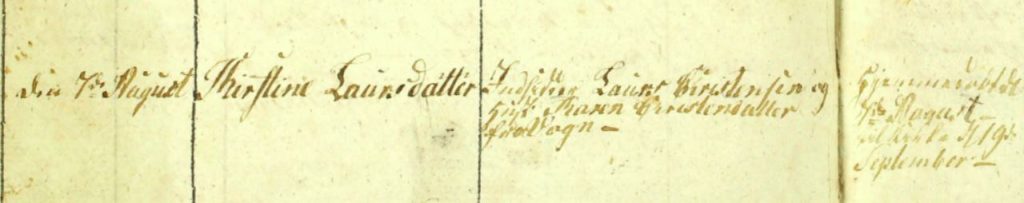 den 7de August
Kirstine Laursdatter
Indsidder Laurs Christensen og
Hust. Karen Christensdatter
Hjemmedøbt d
7de August
til Kirke d 19de
September